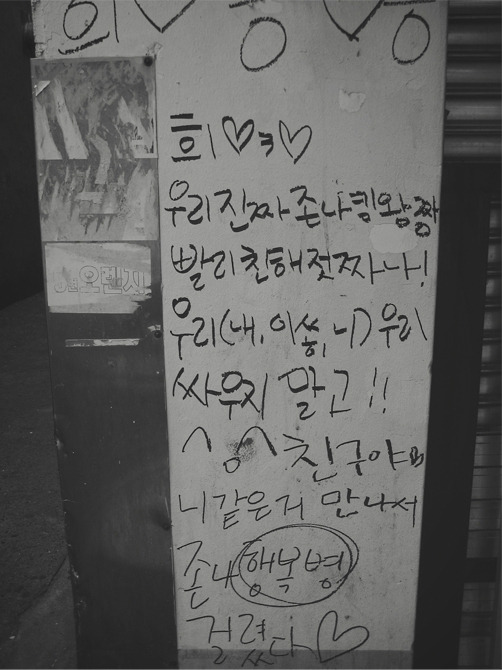 희♡ㅋ♡
우리진짜존나킹왕짱
빨리친해젓짜나!
우리(내, 이쏡, 니) 우리
싸우지 말고!!
^ㅇ^ 친구야
니같은거 만나서
존나 행복병
걸렸다♡